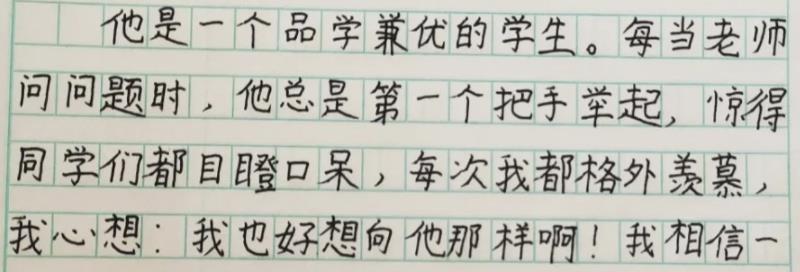 他是一个品学兼优的学生。每当老师
问问题时，他总是第一个把手举起，惊得
同学们都目瞪口呆，每次我都格外羡慕，
我心想：我也好想向他那样啊！我相信一